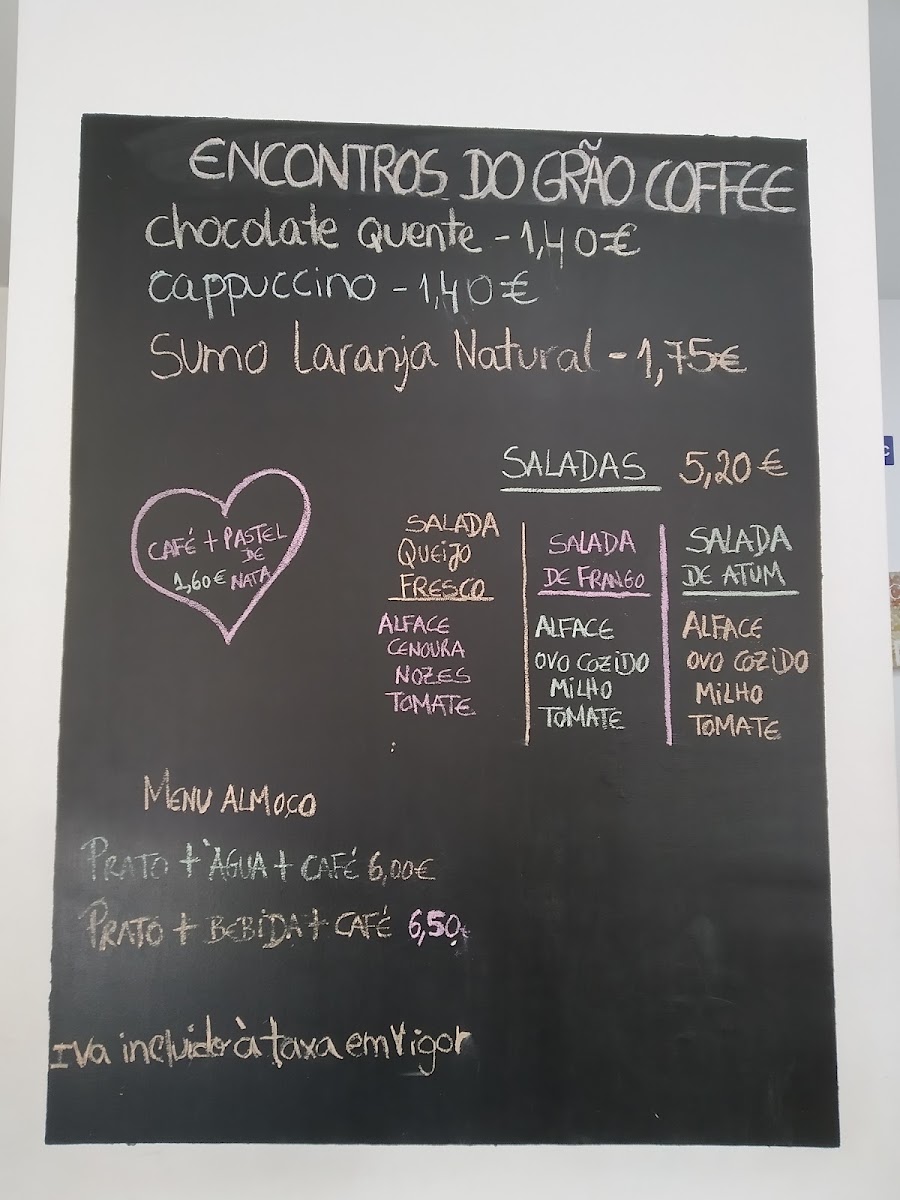 ENCONTROS DO GRÃO COFFEE
Chocolate Quente - 1,40€
Cappuccino - 1,40€
Sumo Laranja Natural - 1,75€
SALADAS 5,20€
CAFÉ + PASTEL
DE
1,60€ NATA
SALADA
QUEIJO
FRESCO
ALFACE
CENOURA
NOZES
TOMATE
SALADA
DE FRANGO
ALFACE
OVO COZIDO
MILHO
TOMATE
SALADA
DE ATUM
ALFACE
OVO COZIDO
MILHO
TOMATE
MENU ALMOÇO
PRATO + ÀGUA + CAFÉ 6,00€
PRATO + BEBIDA + CAFÉ 6,50€
Iva incluido à taxa em Vigor